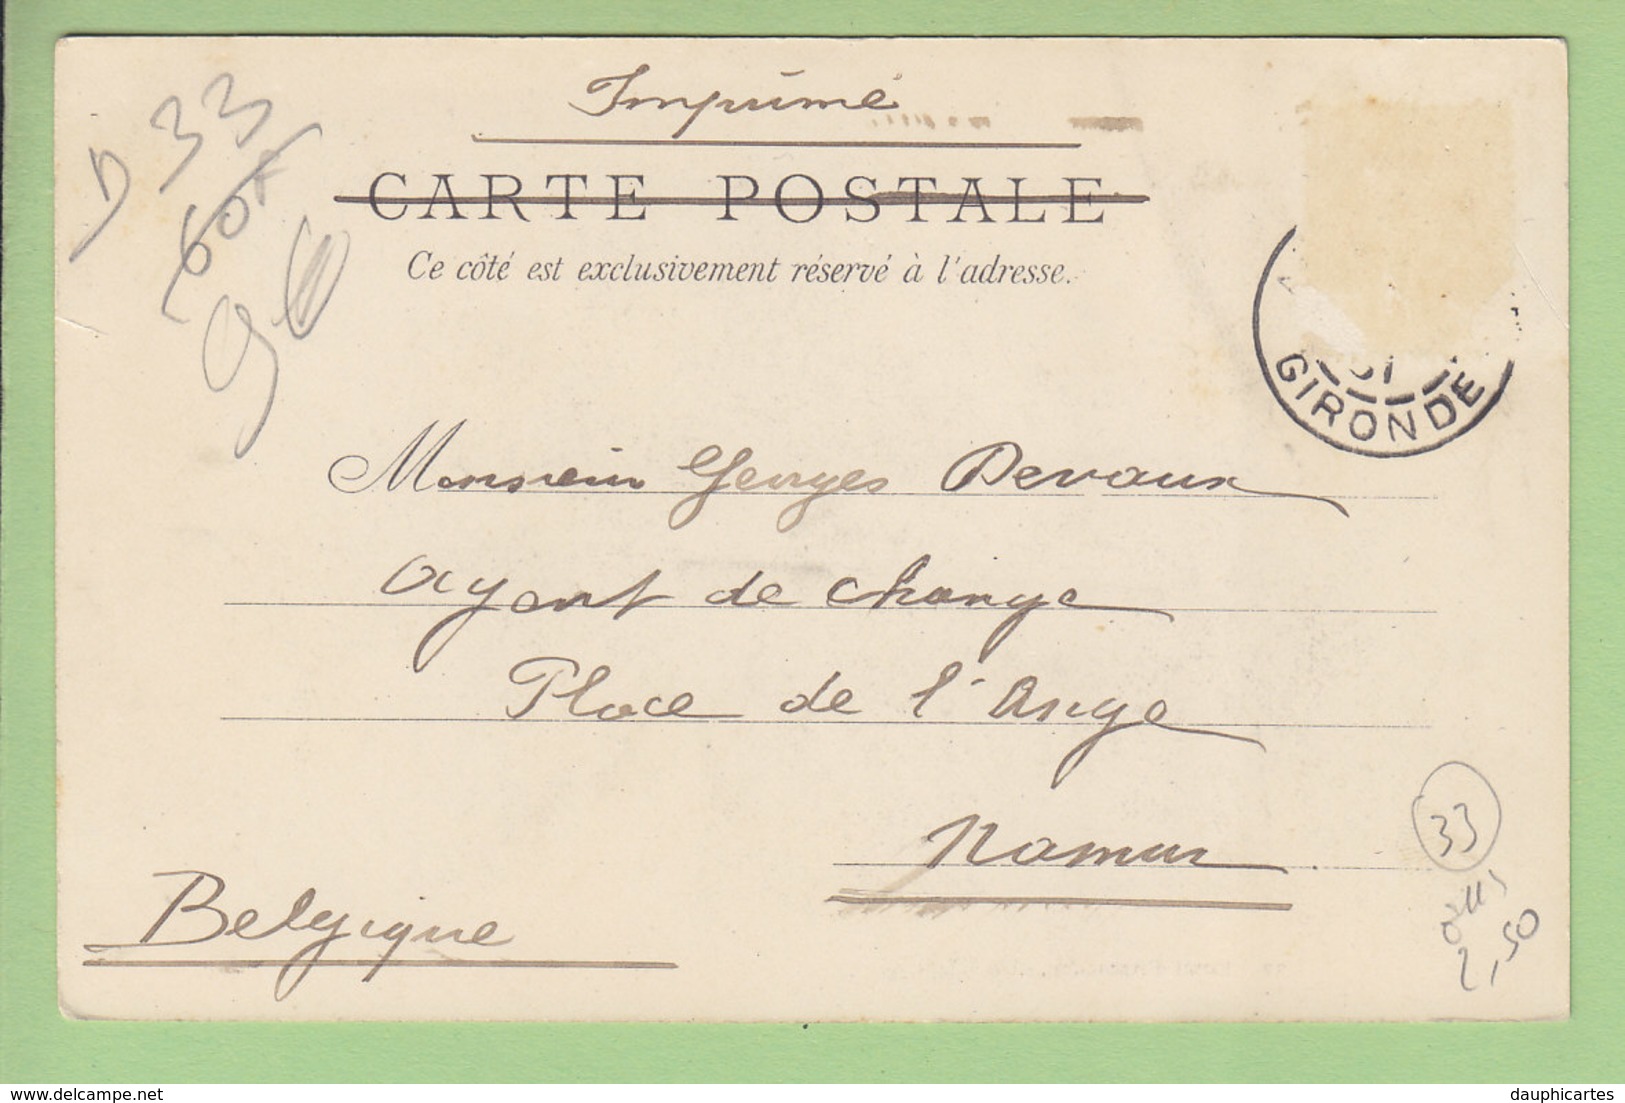 Imprimé
CARTE POSTALE
Ce côté est exclusivement réservé à l'adresse.
D 33
60F
9€
GIRONDE
Monsieur Georges Devaux
Agent de change
Place de l'Ange
Namur
Belgique
33
2,50
dauphicartes